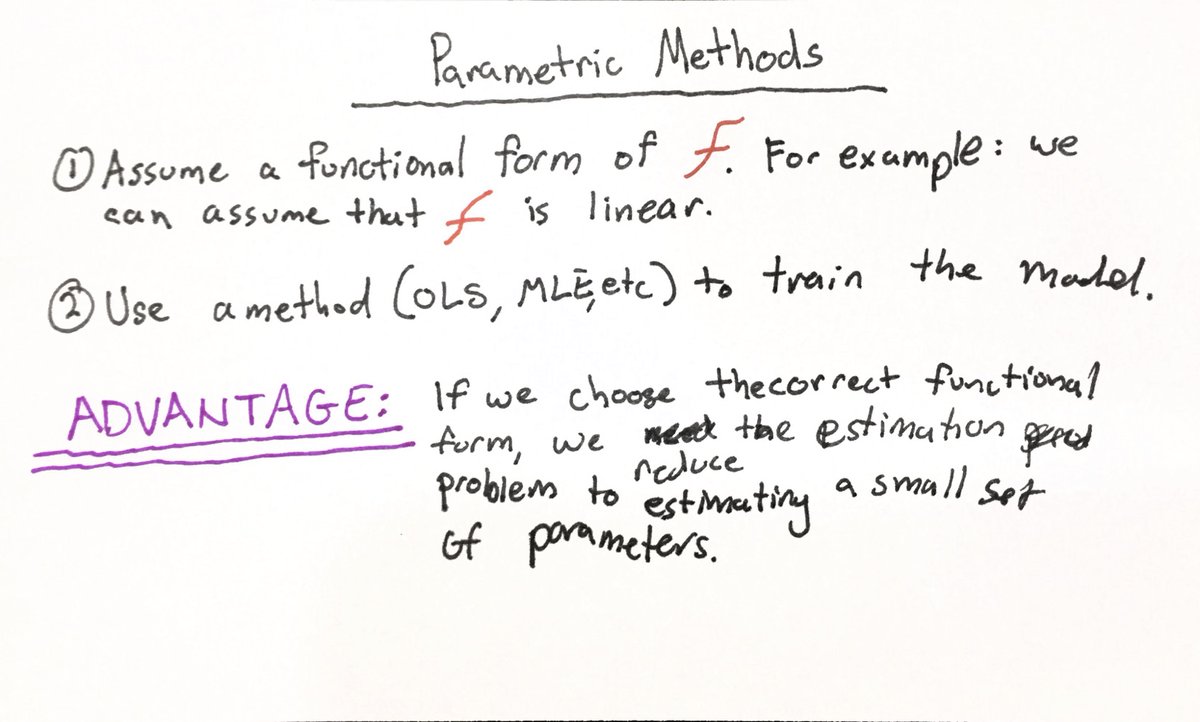 Parametric Methods
① Assume a functional form of f. For example: we
can assume that f is linear.
② Use a method (OLS, MLE, etc) to train the model.
ADVANTAGE: If we choose the correct functional
form, we reduce the estimation
problem to estimating a small set
of parameters.